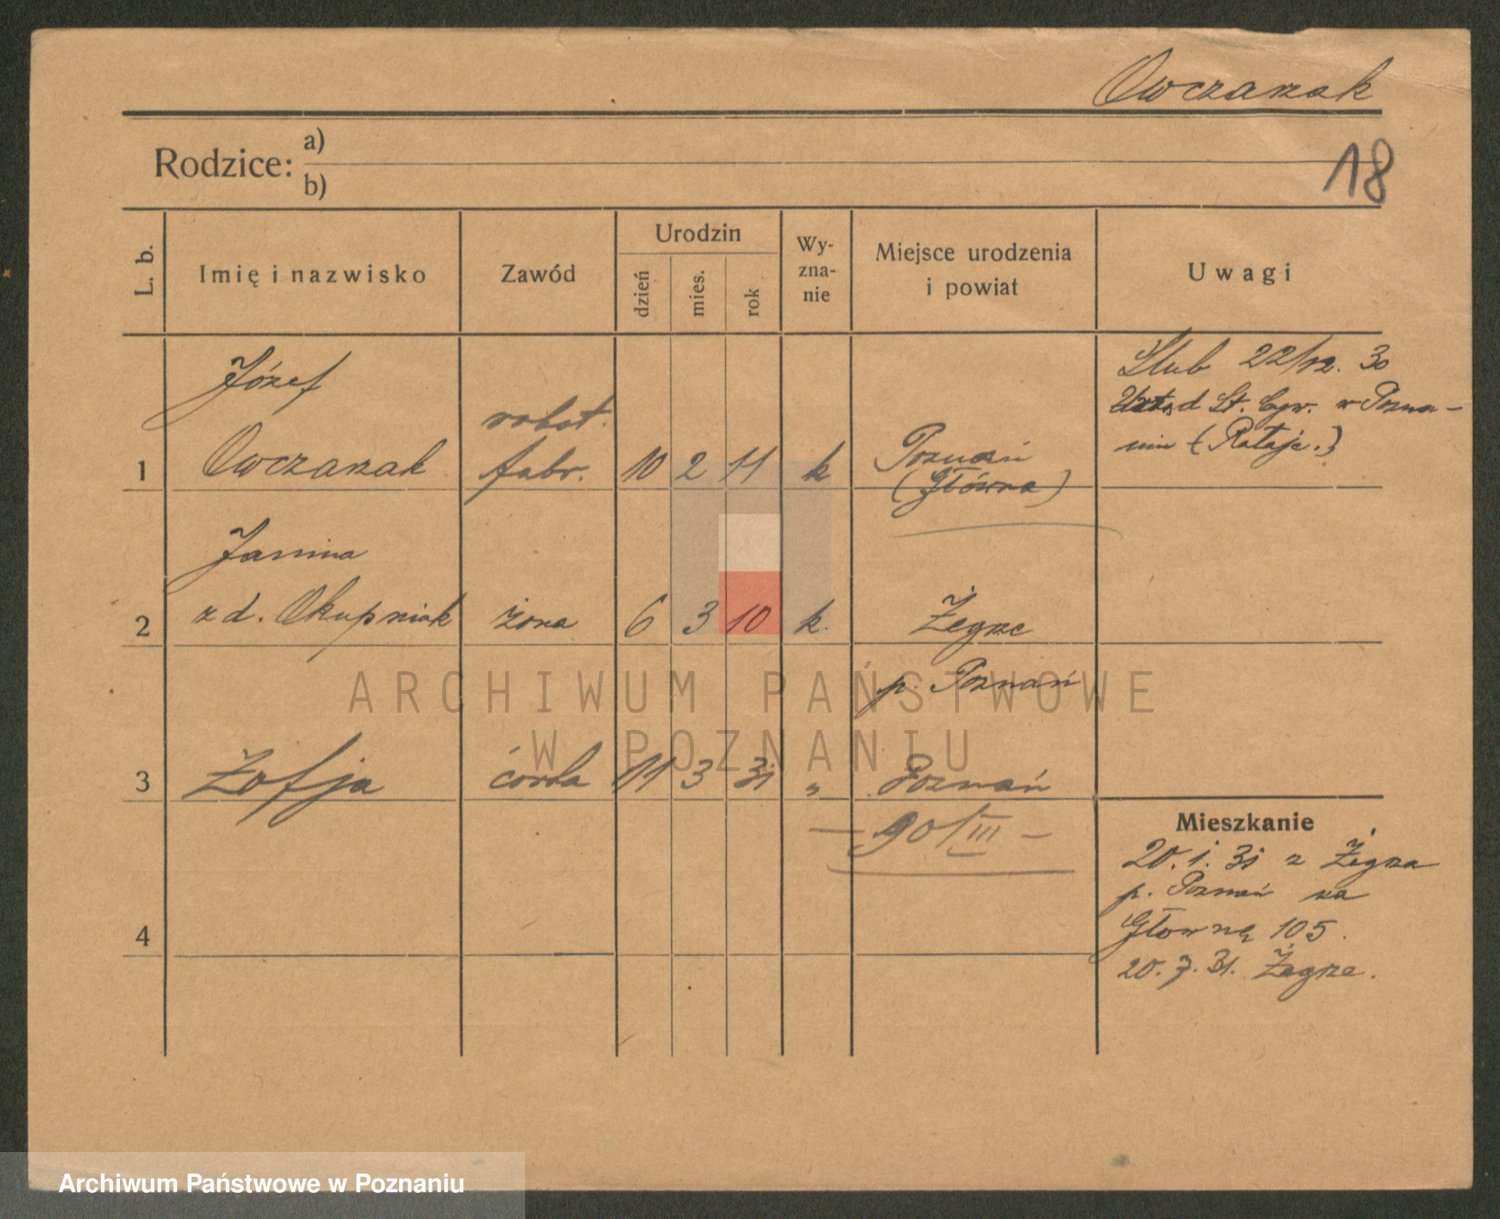 Owczarzak
18
Rodzice:
a)
b)
L. b.
Imię i nazwisko
Zawód
Urodzin
dzień
mies.
rok
Wy-
zna-
nie
Miejsce urodzenia
i powiat
Uwagi
1
Józef
Owczarzak
robot.
fabr.
10 2 11
k
Poznań
(Główna)
Ślub 22/12. 30
Urząd St. Cyw. w Pozna-
niu (Rataje.)
2
Janina
z d. Okupniak
żona
6 3 10
k.
Żegrze
p. Poznań
3
Zofja
córka
11 3 31
„
Poznań
— 90/III —
4
Mieszkanie
20. 1. 31 z Żegrza
p. Poznań na
Główną 105.
20. 7. 31. Żegrze.
ARCHIWUM PAŃSTWOWE
W POZNANIU
Archiwum Państwowe w Poznaniu